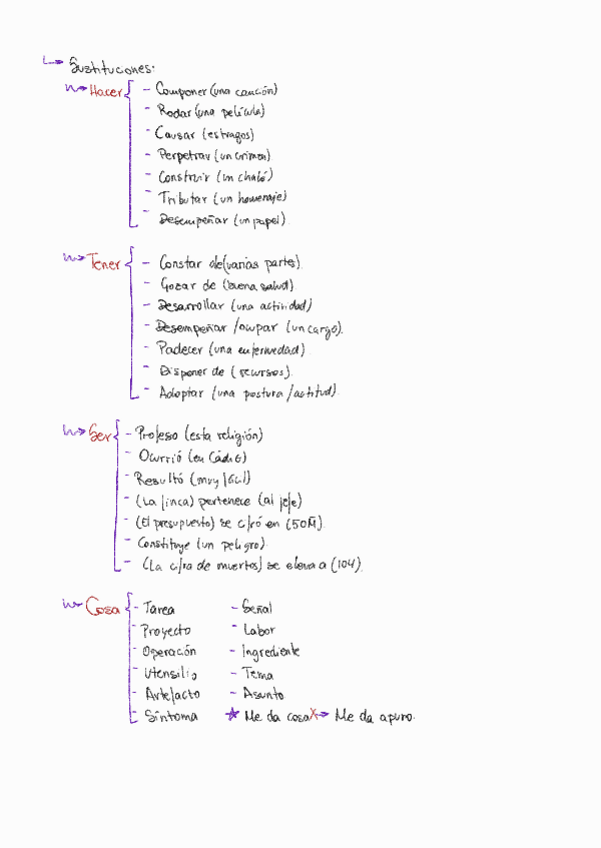 Sustituciones:
Hacer
- Componer (una canción)
- Rodar (una película)
- Causar (estragos)
- Perpetrar (un crimen)
- Construir (un chalé)
- Tributar (un homenaje)
- Desempeñar (un papel).
Tener
- Constar de (varias partes).
- Gozar de (buena salud).
- Desarrollar (una actividad)
- Desempeñar /ocupar (un cargo).
- Padecer (una enfermedad)
- Disponer de (recursos).
- Adoptar (una postura /actitud).
Ser
- Profeso (esta religión)
- Ocurrió (en Cádiz)
- Resultó (muy fácil)
- (La finca) pertenece (al jefe)
- (El presupuesto) se cifró en (50M).
- Constituye (un peligro).
- (La cifra de muertos) se eleva a (104).
Cosa
- Tarea - Señal
- Proyecto - Labor
- Operación - Ingrediente
- Utensilio - Tema
- Artefacto - Asunto
- Síntoma ★ Me da cosa X → Me da apuro.